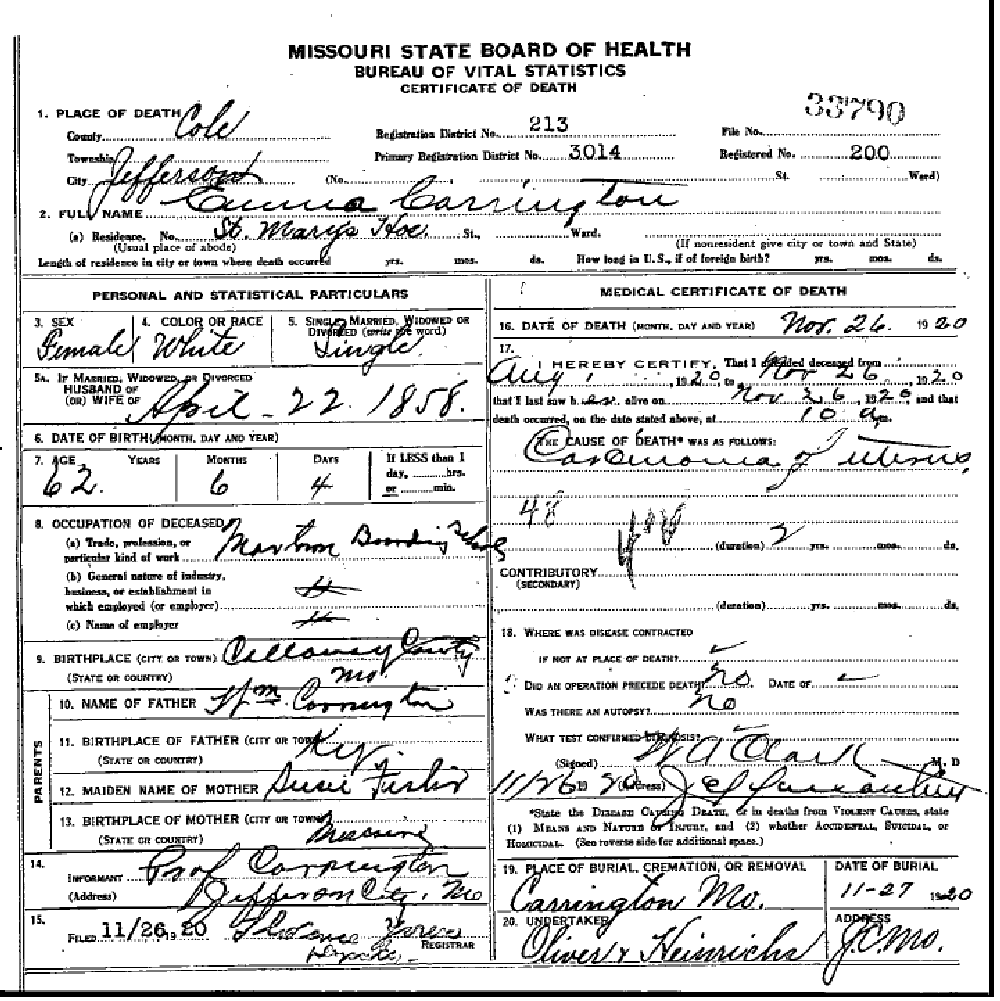 MISSOURI STATE BOARD OF HEALTH
BUREAU OF VITAL STATISTICS
CERTIFICATE OF DEATH
33790
1. PLACE OF DEATH
County Cole Registration District No. 213 File No.
Township Primary Registration District No. 3014 Registered No. 200
City Jefferson (No. , St. Ward)
2. FULL NAME Emma Carrington
(a) Residence. No. St. Marys Hos. St., Ward.
(Usual place of abode) (If nonresident give city or town and State)
Length of residence in city or town where death occurred yrs. mos. ds. How long in U.S., if of foreign birth? yrs. mos. ds.
PERSONAL AND STATISTICAL PARTICULARS
3. SEX 4. COLOR OR RACE 5. SINGLE, MARRIED, WIDOWED OR DIVORCED (write the word)
Female White Single
5A. IF MARRIED, WIDOWED, OR DIVORCED
HUSBAND OF
(OR) WIFE OF
April - 22. 1858.
6. DATE OF BIRTH (MONTH, DAY AND YEAR)
7. AGE YEARS MONTHS DAYS If LESS than 1 day, hrs. or min.
62. 6 4
8. OCCUPATION OF DECEASED
(a) Trade, profession, or particular kind of work Boarding
(b) General nature of industry, business, or establishment in which employed (or employer)
(c) Name of employer
9. BIRTHPLACE (CITY OR TOWN) Callaway County
(STATE OR COUNTRY) Mo.
PARENTS
10. NAME OF FATHER Wm. Carrington
11. BIRTHPLACE OF FATHER (CITY OR TOWN)
(STATE OR COUNTRY) Ky.
12. MAIDEN NAME OF MOTHER Susie Fisher
13. BIRTHPLACE OF MOTHER (CITY OR TOWN)
(STATE OR COUNTRY) Missouri
14.
INFORMANT Prof Carrington
(Address) Jefferson City, Mo
15.
FILED 11/26, 1920 REGISTRAR
MEDICAL CERTIFICATE OF DEATH
16. DATE OF DEATH (MONTH, DAY AND YEAR) Nov. 26. 1920
17.
I HEREBY CERTIFY, That I attended deceased from
Aug 1, 1920 to Nov 26, 1920
that I last saw her alive on Nov 26, 1920, and that
death occurred, on the date stated above, at 10 a m.
THE CAUSE OF DEATH* WAS AS FOLLOWS:
Carcinoma of uterus,
48
(duration) 2 yrs. mos. ds.
CONTRIBUTORY
(SECONDARY)
(duration) yrs. mos. ds.
18. WHERE WAS DISEASE CONTRACTED
IF NOT AT PLACE OF DEATH?
DID AN OPERATION PRECEDE DEATH? no DATE OF
WAS THERE AN AUTOPSY? no
WHAT TEST CONFIRMED DIAGNOSIS?
(Signed) W A Clark, M. D
11/26 1920 (Address) Jefferson City
*State the DISEASE CAUSING DEATH, or in deaths from VIOLENT CAUSES, state
(1) MEANS AND NATURE OF INJURY, and (2) whether ACCIDENTAL, SUICIDAL, or
HOMICIDAL. (See reverse side for additional space.)
19. PLACE OF BURIAL, CREMATION, OR REMOVAL DATE OF BURIAL
Carrington Mo. 11-27 1920
20. UNDERTAKER ADDRESS
Oliver & Heinrichs J.C. Mo.